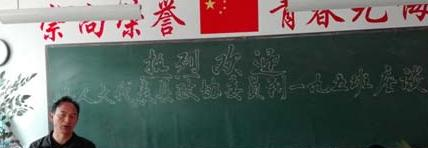 崇尚荣誉 青春无悔
热烈欢迎
人大代表县政协委员到一九五班座谈